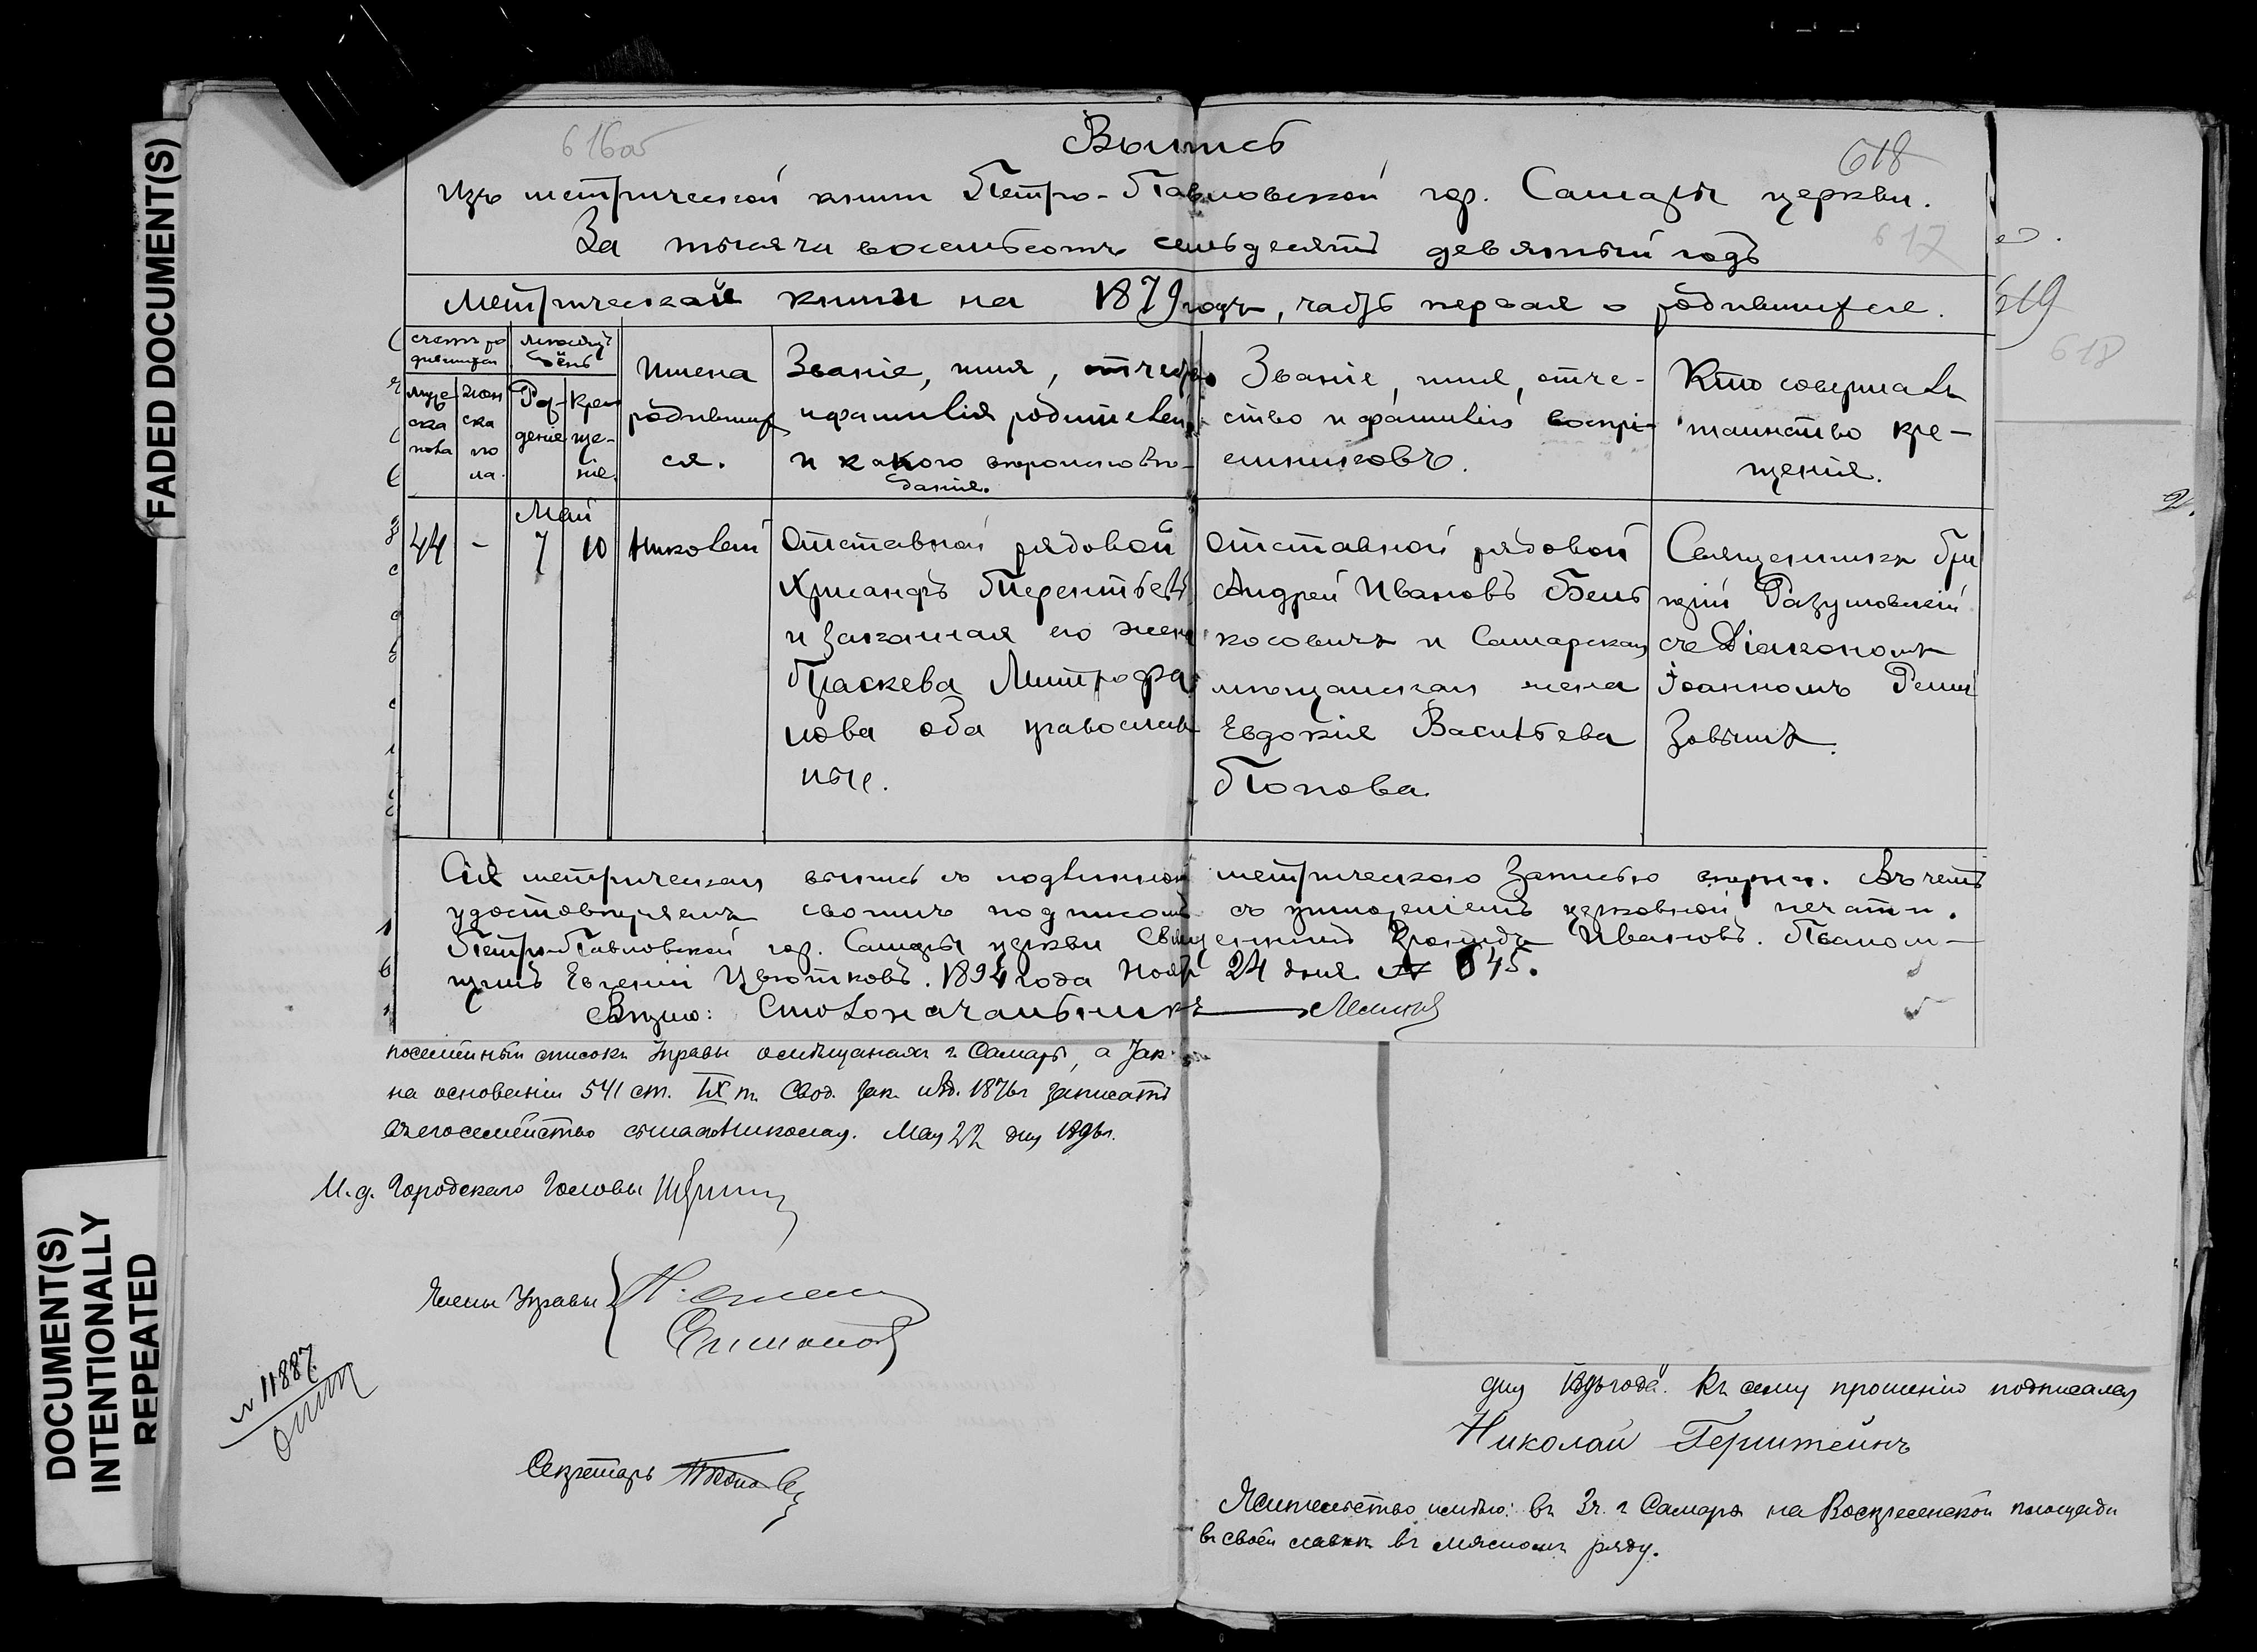 FADED DOCUMENT(S)
DOCUMENT(S)
INTENTIONALLY
REPEATED
616об
618
617
619
618
Выпись
Изъ метрической книги Петро-Павловской гор. Самары церкви.
За тысяча восемьсотъ семьдесятъ девятый годъ
Метрической книги на 1879 годъ, часть первая о родившихся.
счетъ родившихся
мужеска пола
женска пола.
Мѣсяцъ и день
Рожденіе
Крещеніе.
Имена родившихся.
Званіе, имя, отчество
и фамилія родителей
и какого вѣроисповѣданія.
Званіе, имя, отче-
ство и фамилія воспрі-
емниковъ.
Кто совершалъ
таинство кре-
щенія.
Май
44 - 7 10 Николай
Отставной рядовой
Хрисанфъ Терентьевъ
и законная его жена
Праскева Митрофа
нова оба православ
ные.
Отставной рядовой
Андрей Ивановъ Бень
косовичъ и Самарская
мѣщанская жена
Евдокія Васильева
Попова.
Священникъ Гри
горій Разумовскій
съ Діакономъ
Іоанномъ
Сія метрическая выпись съ подлинной метрическою записью вѣрна. Въ чемъ
удостовѣряемъ своимъ подписомъ съ приложеніемъ церковной печати.
Петро-Павловской гор. Самары церкви Священникъ Ивановъ. Псалом-
щикъ Евгеній Цвѣтковъ. 1894 года Нояб 24 дня № 645.
Вѣрно: Столоначальникъ
посемейный списокъ Управы о мѣщанахъ г. Самары, а
на основаніи 541 ст. IX т. Свод. Зак. изд. 1876 г. записать
въ его семейство сына его Николая. Мая 22 дня 1896 г.
И. д. Городского Головы
Члены Управы
Секретарь
№ 11887
дня года. Къ сему прошенію подписался
Николай Герштейнъ
Жительство имѣю: въ 3 ч. г. Самары на Воскресенской площади
въ своей лавкѣ въ мясномъ ряду.